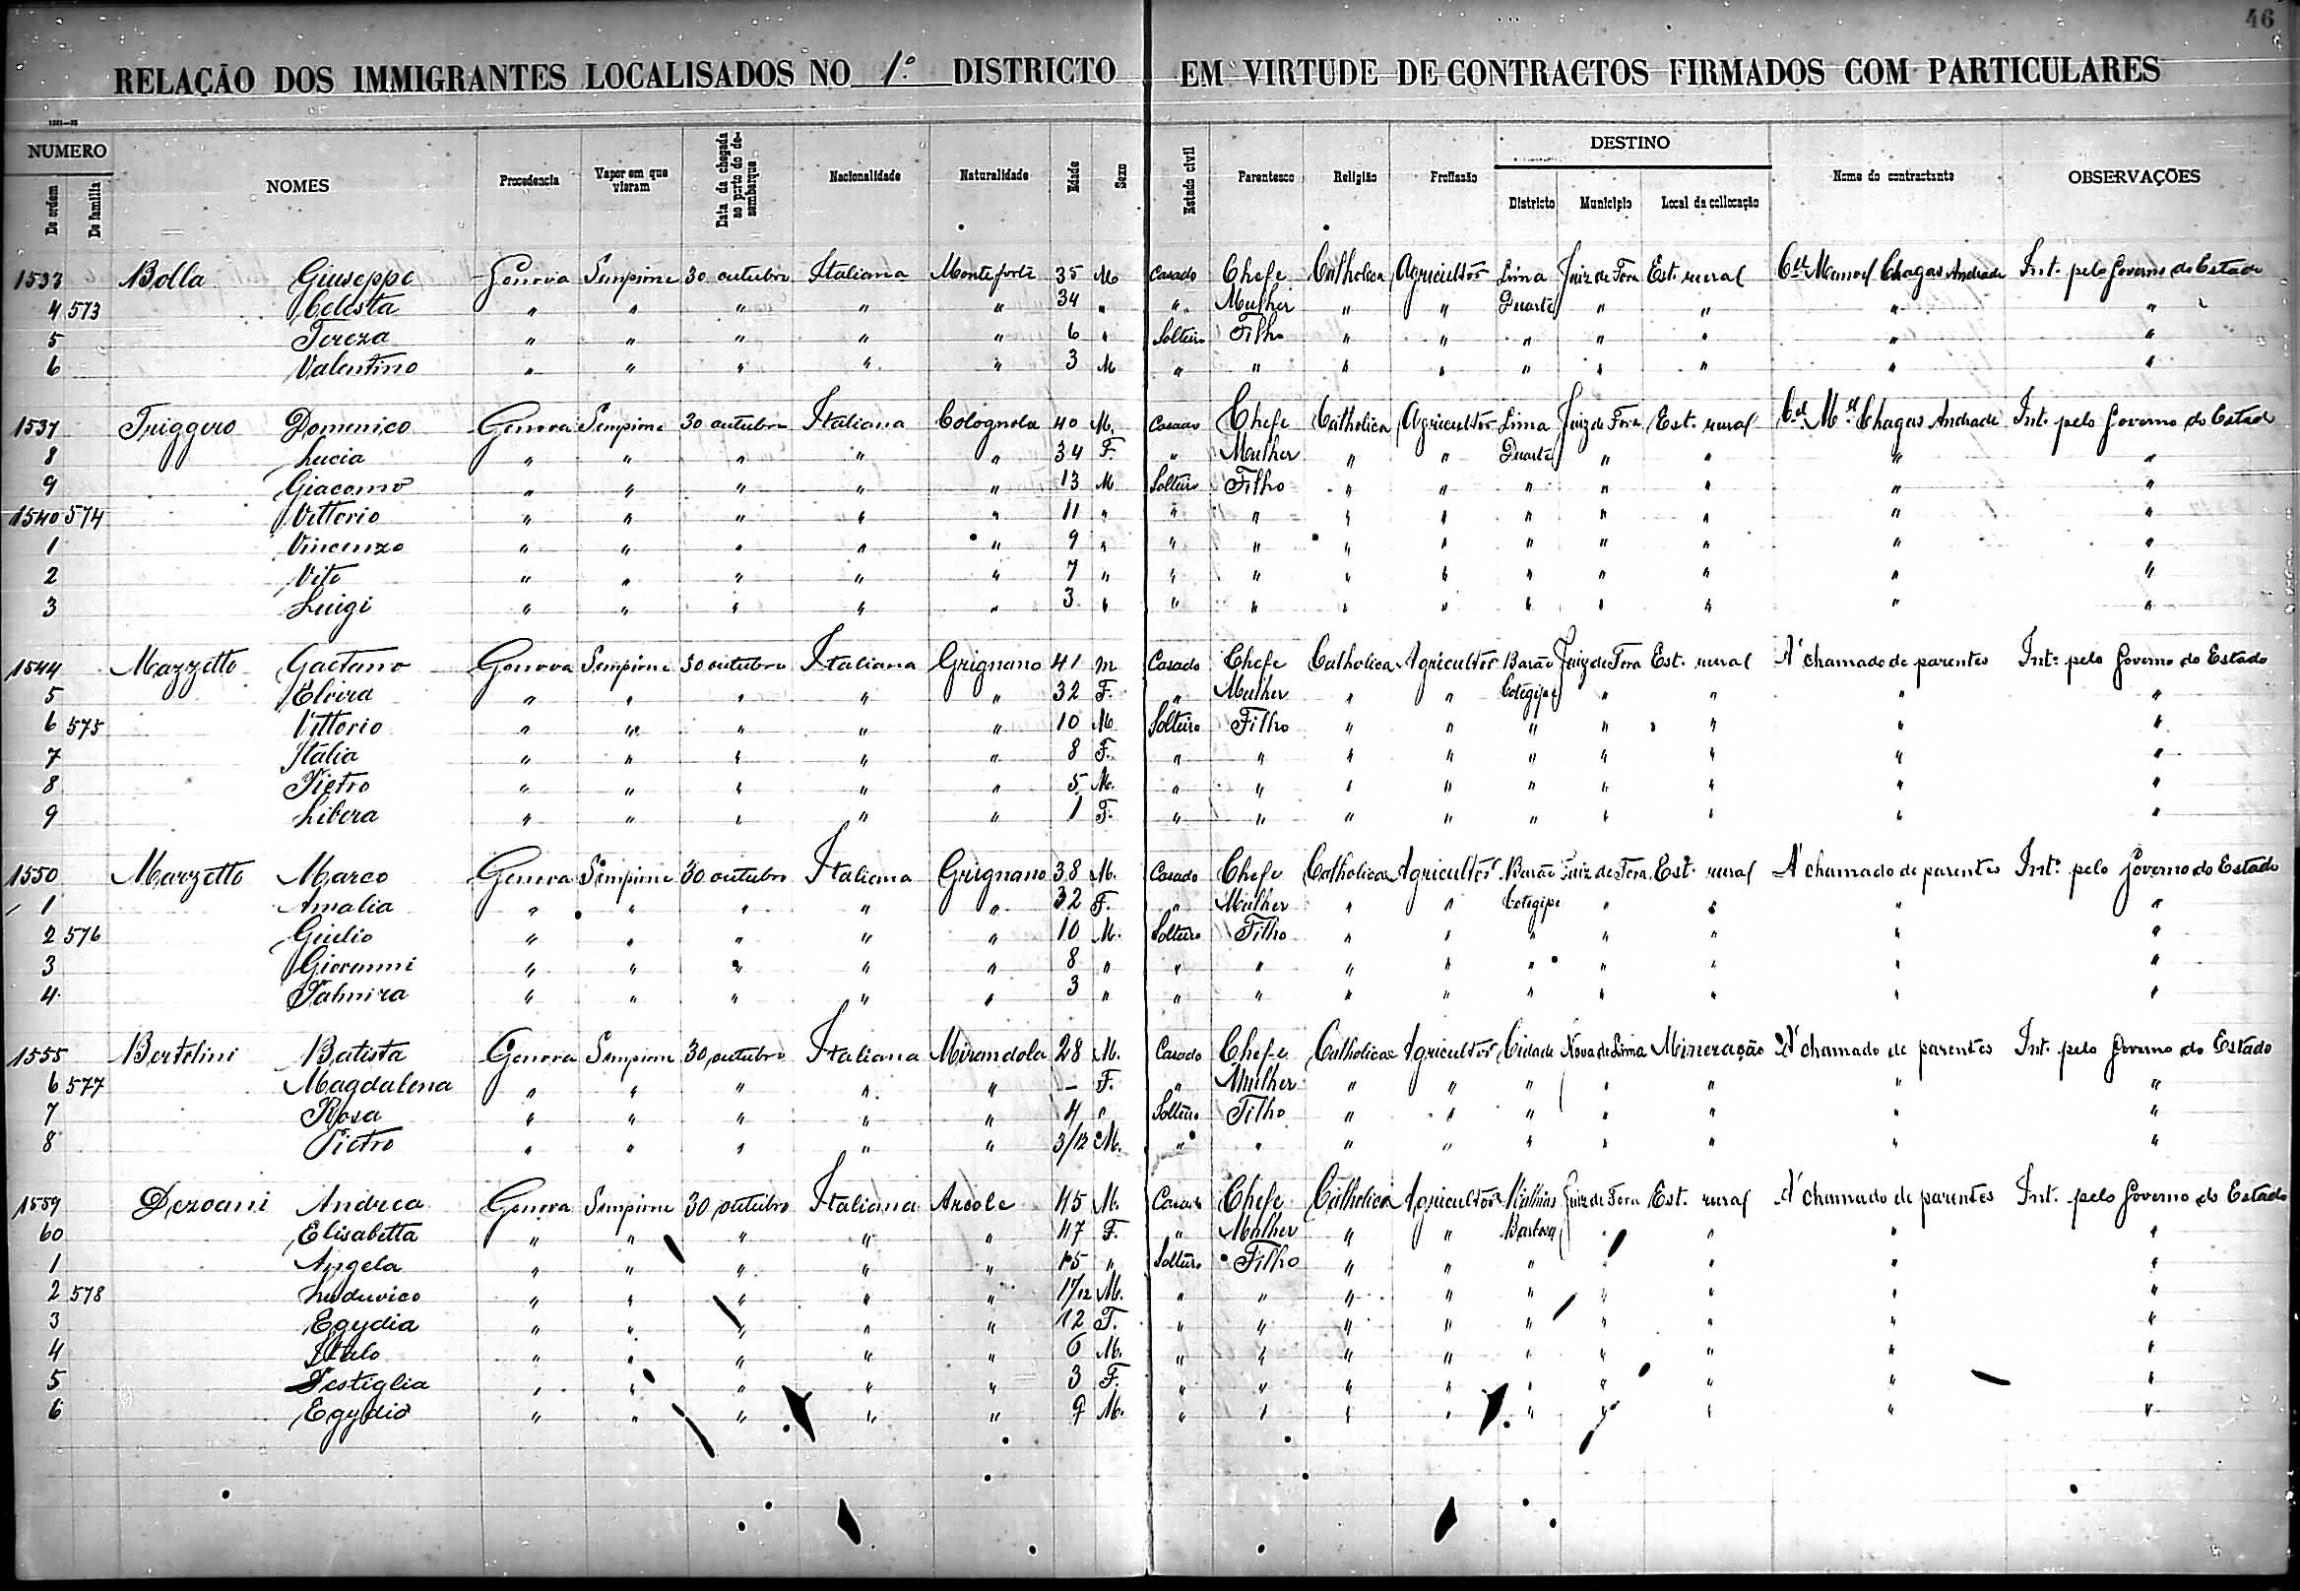 46
RELAÇÃO DOS IMMIGRANTES LOCALISADOS NO 1º DISTRICTO EM VIRTUDE DE CONTRACTOS FIRMADOS COM PARTICULARES
NUMERO DESTINO
De ordem De familia NOMES Procedencia Vapor em que vieram Data da chegada ao porto do desembarque Nacionalidade Naturalidade Edade Sexo Estado civil Parentesco Religião Profissão Districto Municipio Local da collocação Nome do contractante OBSERVAÇÕES
1533 Bolla Giuseppe Genova Sempione 30 outubro Italiana Monteforte 35 M Casado Chefe Catholica Agricultor Lima Juiz de Fora Est. rural Cel Manoel Chagas Andrade Int. pelo Governo do Estado
4 573 Celesta " " " " " 34 " " Mulher " " Duarte " " " "
5 Tereza " " " " " 6 " Solteiro Filho " " " " " " "
6 Valentino " " " " " 3 M " " " " " " " " "
1537 Triggero Domenico Genova Sempione 30 outubro Italiana Colognola 40 M. Casado Chefe Catholica Agricultor Lima Juiz de Fora Est. rural Cel Mel Chagas Andrade Int. pelo Governo do Estado
8 Lucia " " " " " 34 F. " Mulher " " Duarte " " " "
9 Giacomo " " " " " 13 M Solteiro Filho " " " " " " "
1540 574 Vittorio " " " " " 11 " " " " " " " " " "
1 Vincenzo " " " " " 9 " " " " " " " " " "
2 Vito " " " " " 7 " " " " " " " " " "
3 Luigi " " " " " 3 " " " " " " " " " "
1544 Mazzetto Gaetano Genova Sempione 30 outubro Italiana Grignano 41 m Casado Chefe Catholica Agricultor Barão Juiz de Fora Est. rural A' chamado de parentes Int. pelo Governo do Estado
5 Elvira " " " " " 32 F. " Mulher " " Cotegipe " " " "
6 575 Vittorio " " " " " 10 M Solteiro Filho " " " " " " "
7 Italia " " " " " 8 F. " " " " " " " " "
8 Pietro " " " " " 5 M. " " " " " " " " "
9 Libera " " " " " 1 F. " " " " " " " " "
1550 Marzetto Marco Genova Sempione 30 outubro Italiana Grignano 38 M. Casado Chefe Catholica Agricultor Barão Juiz de Fora Est. rural A' chamado de parentes Int. pelo Governo do Estado
1 Amalia " " " " " 32 F. " Mulher " " Cotegipe " " " "
2 576 Giulio " " " " " 10 M. Solteiro Filho " " " " " " "
3 Giovanni " " " " " 8 " " " " " " " " " "
4 Palmira " " " " " 3 " " " " " " " " " "
1555 Bertolini Batista Genova Sempione 30 outubro Italiana Mirandola 28 M. Casado Chefe Catholica Agricultor Cidade Nova de Lima Mineração A' chamado de parentes Int. pelo Governo do Estado
6 577 Magdalena " " " " " - F. " Mulher " " " " " " "
7 Rosa " " " " " 4 " Solteiro Filho " " " " " " "
8 Pietro " " " " " 3/12 M. " " " " " " " " "
1559 Dezoani Andrea Genova Sempione 30 outubro Italiana Arcole 45 M. Casado Chefe Catholica Agricultor Mathias Juiz de Fora Est. rural A' chamado de parentes Int. pelo Governo do Estado
60 Elisabetta " " " " " 47 F. " Mulher " " Barbosa " " " "
1 Angela " " " " " 15 " Solteiro Filho " " " " " " "
2 578 Ludovico " " " " " 17/12 M. " " " " " " " " "
3 Egydia " " " " " 12 F. " " " " " " " " "
4 Italo " " " " " 6 M. " " " " " " " " "
5 Festiglia " " " " " 3 F. " " " " " " " " "
6 Egydio " " " " " 9 M. " " " " " " " " "